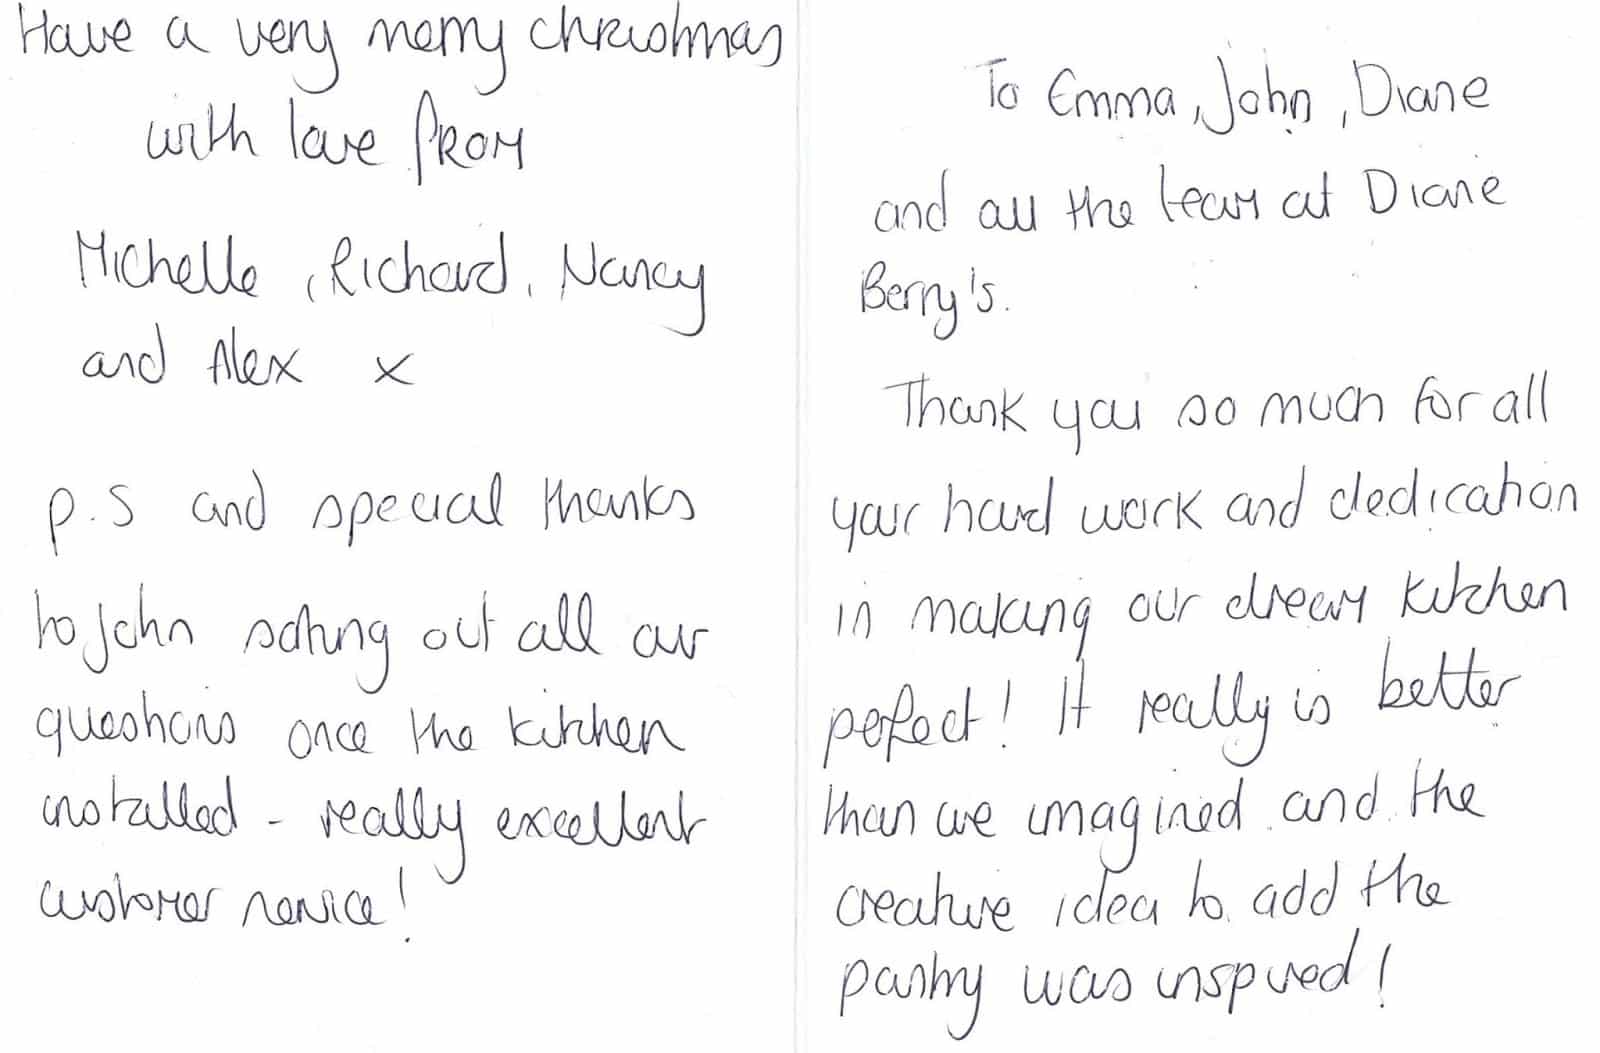 Have a very merry christmas
with love from
Michelle, Richard, Nancy
and Alex x
p.s and special thanks
to John sorting out all our
questions once the kitchen
installed - really excellent
customer service!
To Emma, John, Diane
and all the team at Diane
Berry's.
Thank you so much for all
your hard work and dedication
in making our dream kitchen
perfect! It really is better
than we imagined and the
creative idea to add the
pantry was inspired!